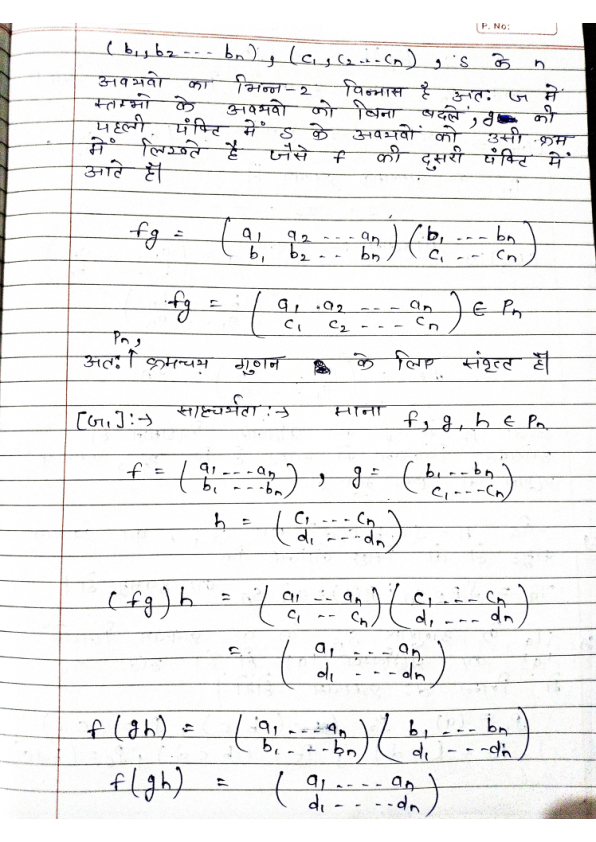 P. No:
(b₁, b₂ --- bₙ), (c₁, c₂ --- cₙ), S के n
अवयवो का भिन्न-2 विन्यास है अतः में
स्तम्भो के अवयवो को बिना बदले, की
पहली पंक्ति में S के अवयवों को उसी क्रम
में लिखते है जैसे f की दुसरी पंक्ति में
आते हैं।
fg = ( a₁ a₂ --- aₙ ) ( b₁ --- bₙ )
( b₁ b₂ -- bₙ ) ( c₁ -- cₙ )
fg = ( a₁ a₂ --- aₙ ) ∈ Pₙ
( c₁ c₂ --- cₙ )
Pₙ,
अतः ↑ क्रमचय गुणन के लिए संवृत्त है।
[G₁] :→ साहचर्यता :→ माना f, g, h ∈ Pₙ
f = ( a₁ ---- aₙ ) , g = ( b₁ --- bₙ )
( b₁ ---- bₙ ) ( c₁ --- cₙ )
h = ( c₁ ---- cₙ )
( d₁ ---- dₙ )
(fg)h = ( a₁ -- aₙ ) ( c₁ --- cₙ )
( c₁ -- cₙ ) ( d₁ --- dₙ )
= ( a₁ ---- aₙ )
( d₁ ---- dₙ )
f(gh) = ( a₁ ---- aₙ ) ( b₁ --- bₙ )
( b₁ ---- bₙ ) ( d₁ --- dₙ )
f(gh) = ( a₁ ---- aₙ )
( d₁ ---- dₙ )